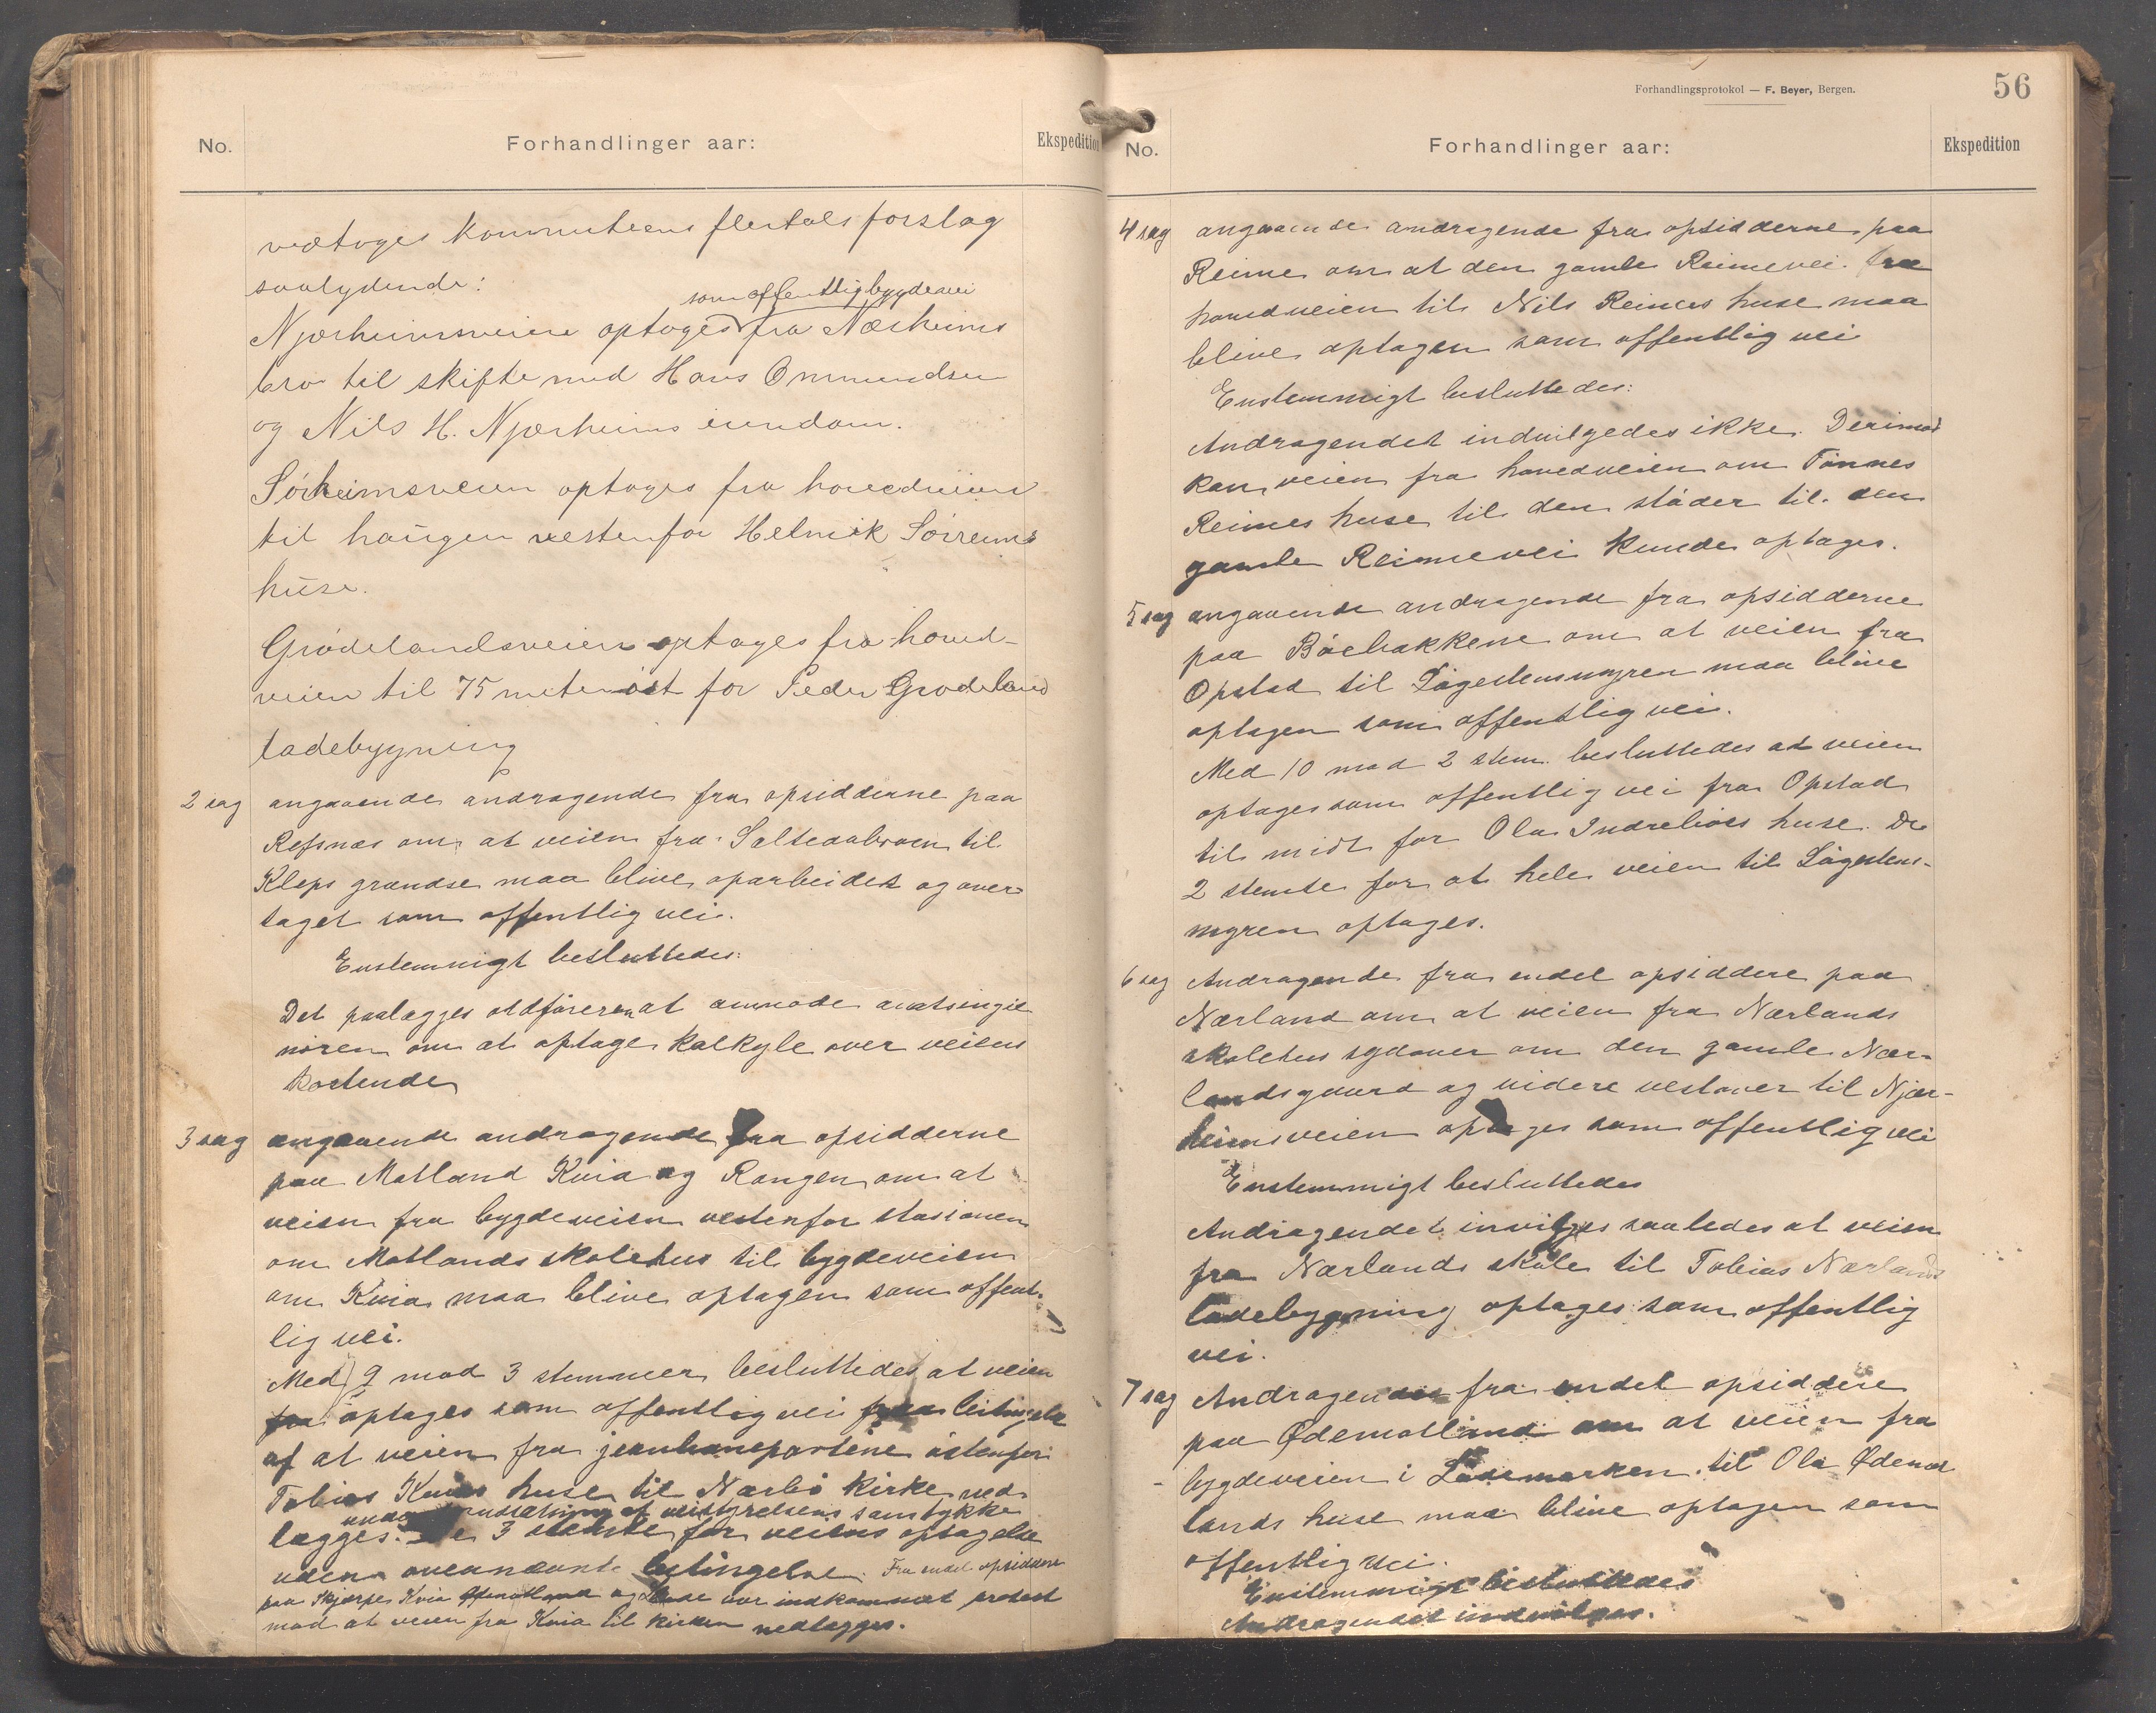 No.
Forhandlinger aar:
Ekspedition
vedtoges kommiteens flertals forslag
saalydende:
som offentlig bygdevei
Njærheimsveien optages fra Næsheims
bro til skifte med Hans Ommundsen
og Nils H. Njærheims eiendom.
Sørheimsveien optages fra hovedveien
til haugen vestenfor Helmik Sørreims
huse.
Grødelandsveien optages fra hoved-
veien til 75 meter øst for Peder Grødeland
ladebygning
2 sag angaaende andragende fra opsidderne paa
Refsnæs om at veien fra Salteaabroen til
Kleps grændse maa blive oparbeidet og over-
taget som offentlig vei.
Enstemmigt besluttedes:
Det paalægges ordføreren at anmode amtsingie
nøren om at optage kalkyle over veiens
kostende
3 sag angaaende andragende fra opsidderne
paa Motland Kvia og Rongen om at
veien fra bygdeveien vestenfor stasionen
om Motlands skolehus til bygdeveien
om Kvia maa blive optagen som offent-
lig vei.
Med 9 mod 3 stemmer besluttedes at veien
fra optages som offentlig vei paa betingelse
af at veien fra jernbaneportene østenfor
Tobias Kvias huse til Nærbø kirke ned-
under forudsætning af veistyrelsens samtykke
lægges. De 3 stemte for veiens optagelse
uden ovennævnte betingelse. Fra endel opsiddere
paa Skjærpe, Kvia og var indkommet protest
mod at veien fra Kvia til kirken nedlægges.
Forhandlingsprotokol — F. Beyer, Bergen.
56
No.
Forhandlinger aar:
Ekspedition
4 sag angaaende andragende fra opsidderne paa
Reime om at den gamle Reimevei fra
hovedveien til Nils Reimes huse maa
blive optagen som offentlig vei
Enstemmigt besluttedes:
Andragendet indvilgedes ikke. Derimod
kan veien fra hovedveien om Tønnes
Reimes huse til den støder til den
gamle Reimevei kunde optages.
5 sag angaaende andragende fra opsidderne
paa Bøebakkene om at veien fra
Opstad til Lågestensmyren maa blive
optagen som offentlig vei.
Med 10 mod 2 stem. besluttedes at veien
optages som offentlig vei fra Opstad
til midt for Ola Indrebøes huse. De
2 stemte for at hele veien til Lågestens-
myren optages.
6 sag Andragende fra endel opsiddere paa
Nærland om at veien fra Nærlands
skolehus sydover om den gamle Nær-
landsgaard og videre vestover til Njær-
heimsveien optages som offentlig vei
Enstemmigt besluttedes
Andragendet invilges saaledes at veien
fra Nærlands skole til Tobias Nærlands
ladebygning optages som offentlig
vei.
7 sag Andragende fra endel opsiddere
paa Ødemotland om at veien fra
bygdeveien i Ladsmarken til Ola Ødemot
lands huse maa blive optagen som
offentlig vei.
Enstemmigt besluttedes
Andragendet indvilges.